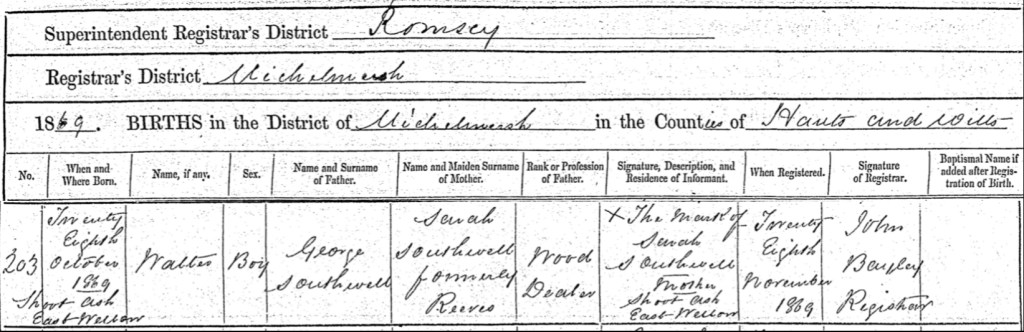 Superintendent Registrar's District Romsey
Registrar's District Michelmersh
1869. BIRTHS in the District of Michelmersh in the Counties of Hants and Wilts
No. When and Where Born. Name, if any. Sex. Name and Surname of Father. Name and Maiden Surname of Mother. Rank or Profession of Father. Signature, Description, and Residence of Informant. When Registered. Signature of Registrar. Baptismal Name if added after Registration of Birth.
203
Twenty
Eighth
October
1869
Shoot Ash
East Wellow
Walter
Boy
George
Southwell
Sarah
Southwell
formerly
Reeves
Wood
Dealer
X The Mark of
Sarah
Southwell
Mother
Shoot Ash
East Wellow
Twenty
Eighth
November
1869
John
Bayley
Registrar